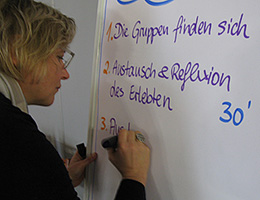 1. Die Gruppen finden sich
2. Austausch & Reflexion
des Erlebten
30'
3.